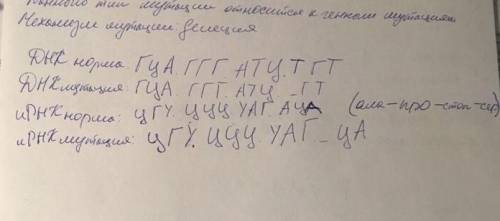 тип мутации относится к генным мутациям
Механизм мутации: делеция
ДНК норма: ГЦА. ГГГ. АТЦ. Т ГТ
ДНК мутация: ГЦА. ГГГ. АТЦ. _ ГТ
иРНК норма: ЦГУ. ЦЦЦ. УАГ. АЦА (ала-про-стоп-сер)
иРНК мутация: ЦГУ. ЦЦЦ. УАГ _ ЦА